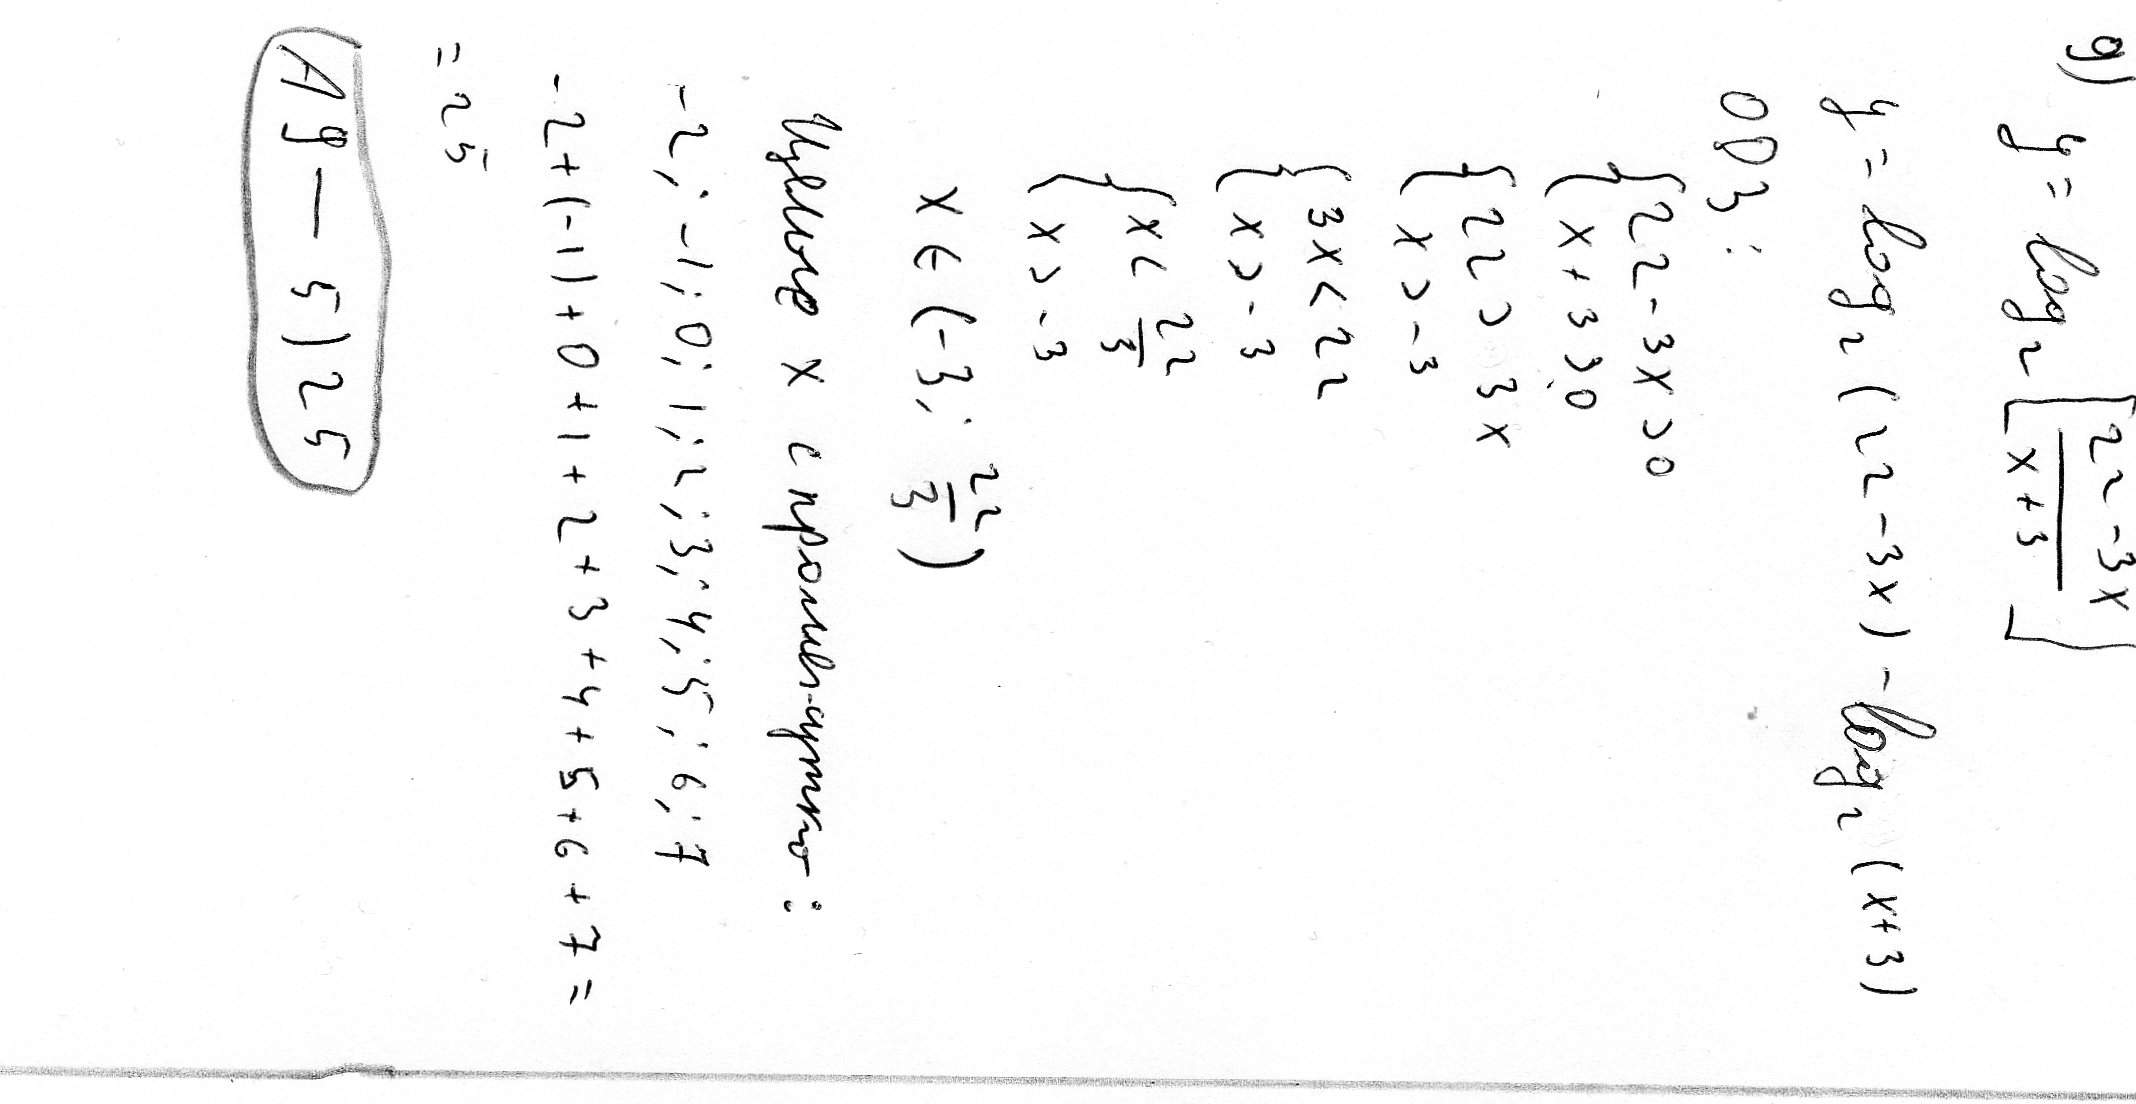 9) y = log₂ [22-3x / x+3]
y = log₂ (22-3x) - log₂ (x+3)
ОДЗ:
{22-3x>0
{x+3>0
{22> 3x
{x>-3
{3x<22
{x>-3
{x< 22/3
{x>-3
x ∈ (-3; 22/3)
Целые x с промежутко:
-2; -1; 0; 1; 2; 3; 4; 5; 6; 7
-2+(-1)+0+1+2+3+4+5+6+7=
=25
А9 — 5) 25